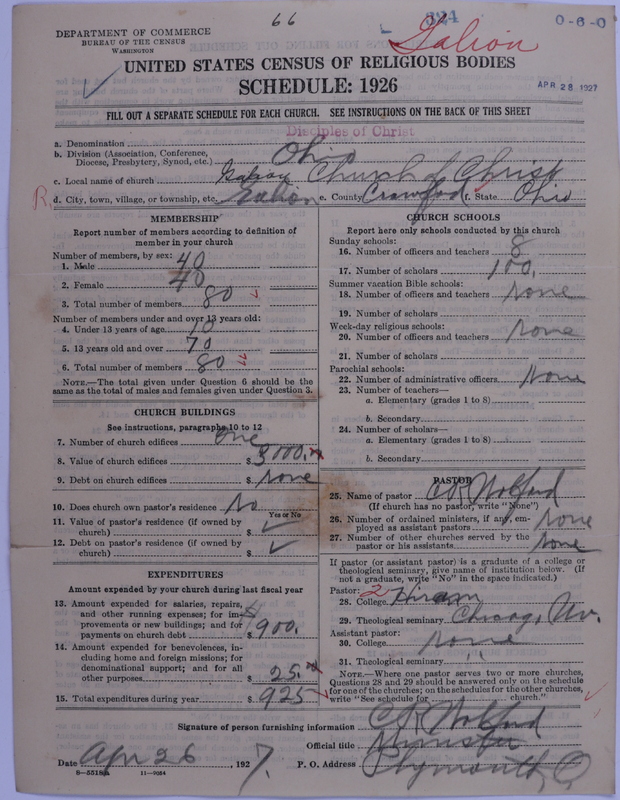 66
324
0-6-0
DEPARTMENT OF COMMERCE
BUREAU OF THE CENSUS
WASHINGTON
Galion
UNITED STATES CENSUS OF RELIGIOUS BODIES
SCHEDULE: 1926
APR 28 1927
FILL OUT A SEPARATE SCHEDULE FOR EACH CHURCH. SEE INSTRUCTIONS ON THE BACK OF THIS SHEET
Disciples of Christ
a. Denomination
b. Division (Association, Conference, Diocese, Presbytery, Synod, etc.) Ohio
c. Local name of church Church of Christ
R. d. City, town, village, or township, etc. Galion e. County Crawford f. State Ohio
MEMBERSHIP
Report number of members according to definition of member in your church
Number of members, by sex:
1. Male 40
2. Female 40
3. Total number of members 80
Number of members under and over 13 years old:
4. Under 13 years of age 10
5. 13 years old and over 70
6. Total number of members 80
NOTE.—The total given under Question 6 should be the same as the total of males and females given under Question 3.
CHURCH BUILDINGS
See instructions, paragraphs 10 to 12
7. Number of church edifices one
8. Value of church edifices $ 3000.
9. Debt on church edifices $ none
10. Does church own pastor's residence No
Yes or No
11. Value of pastor's residence (if owned by church) $ ✓
12. Debt on pastor's residence (if owned by church) $ ✓
EXPENDITURES
Amount expended by your church during last fiscal year
13. Amount expended for salaries, repairs, and other running expenses; for improvements or new buildings; and for payments on church debt $ 900.
14. Amount expended for benevolences, including home and foreign missions; for denominational support; and for all other purposes $ 25.
15. Total expenditures during year $ 925
CHURCH SCHOOLS
Report here only schools conducted by this church
Sunday schools:
16. Number of officers and teachers 8
17. Number of scholars 100.
Summer vacation Bible schools:
18. Number of officers and teachers none
19. Number of scholars
Week-day religious schools:
20. Number of officers and teachers none
21. Number of scholars
Parochial schools:
22. Number of administrative officers None
23. Number of teachers—
a. Elementary (grades 1 to 8)
b. Secondary
24. Number of scholars—
a. Elementary (grades 1 to 8)
b. Secondary
PASTOR
25. Name of pastor
(If church has no pastor, write "None")
26. Number of ordained ministers, if any, employed as assistant pastors none
27. Number of other churches served by the pastor or his assistants none
If pastor (or assistant pastor) is a graduate of a college or theological seminary, give name of institution below. (If not a graduate, write "No" in the space indicated.)
Pastor: 2
28. College Hiram
29. Theological seminary Chicago, Uv.
Assistant pastor:
30. College none
31. Theological seminary "
NOTE.—Where one pastor serves two or more churches, Questions 28 and 29 should be answered only on the schedule for one of the churches; on the schedules for the other churches, write "See schedule for church."
Signature of person furnishing information
Official title Minister
Date Apr 26, 1927. P. O. Address Plymouth, O.
8—5518a 11—9054